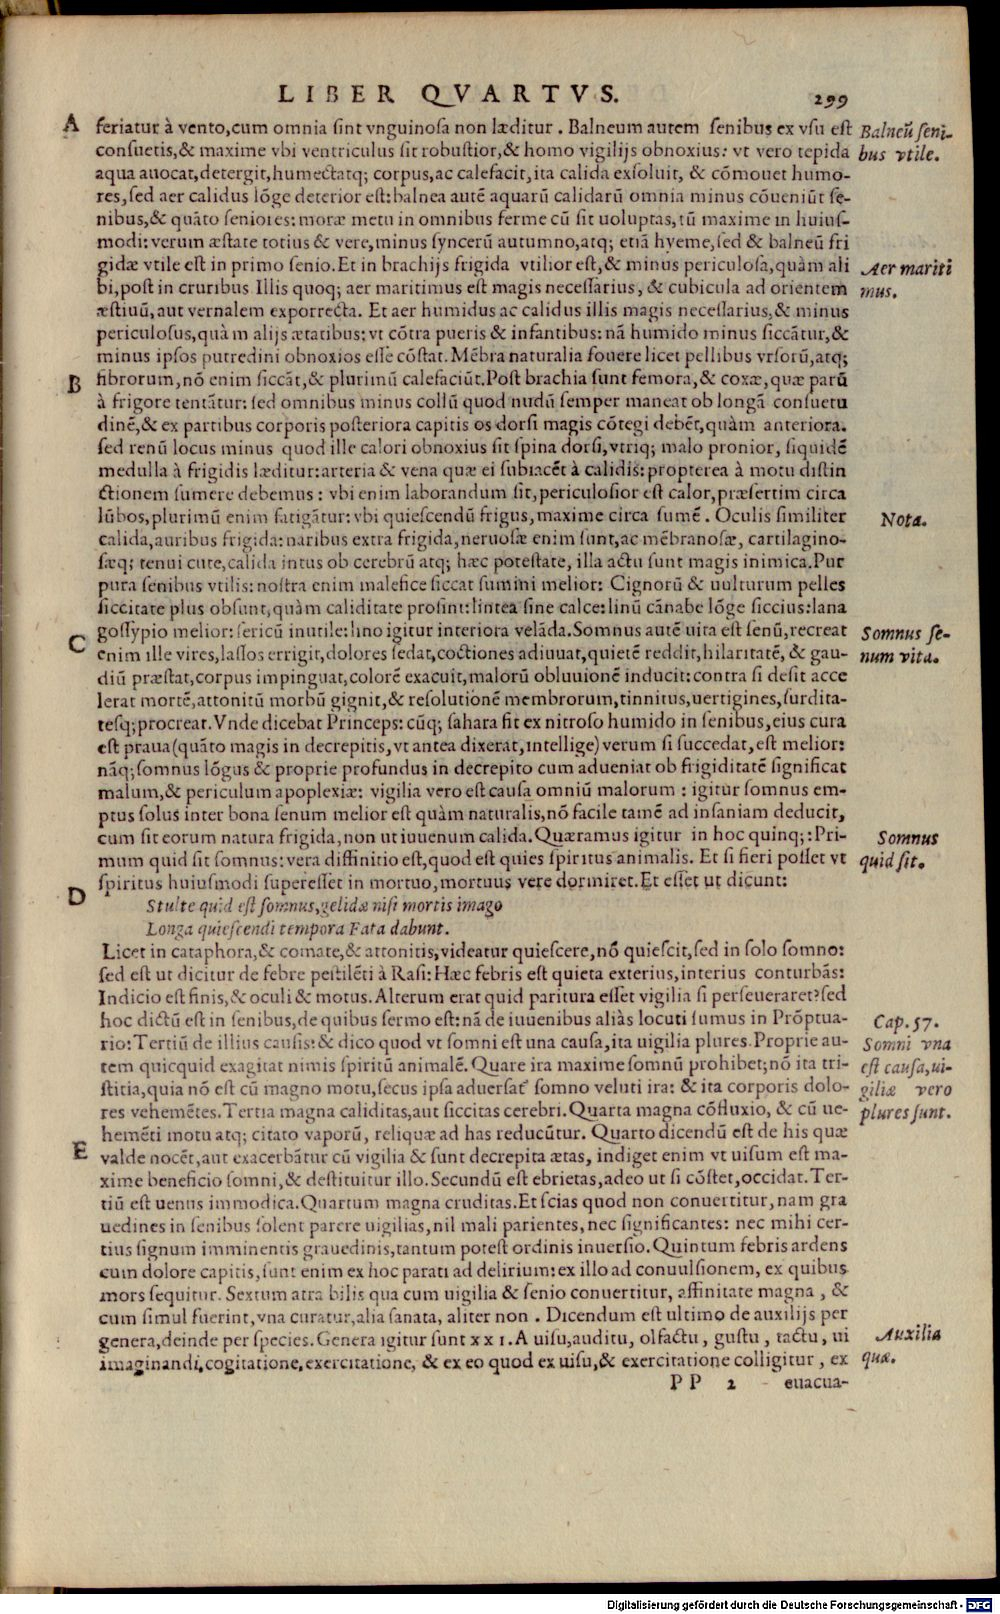 LIBER QVARTVS. 299
A feriatur à vento,cum omnia ſint vnguinoſa non læditur. Balneum autem ſenibus ex vſu eſt
Balneũ ſeni-
conſuetis,& maxime vbi ventriculus ſit robuſtior,& homo vigilijs obnoxius: vt vero tepida
bus vtile.
aqua auocat,detergit,humectatq; corpus,ac calefacit,ita calida exſoluit, & cõmouet humo-
res,ſed aer calidus lõge deterior eſt:balnea autẽ aquarũ calidarũ omnia minus cõueniũt ſe-
nibus,& quãto ſeniores: moræ metu in omnibus ferme cũ ſit uoluptas,tũ maxime in huiuſ-
modi: verum æſtate totius & vere,minus ſyncerũ autumno,atq; etiã hyeme,ſed & balneũ fri
gidæ vtile eſt in primo ſenio.Et in brachijs frigida vtilior eſt,& minus periculoſa,quàm ali
Aer mariti
bi,poſt in cruribus Illis quoq; aer maritimus eſt magis neceſſarius, & cubicula ad orientem
mus.
æſtiuũ,aut vernalem exporrecta. Et aer humidus ac calidus illis magis neceſſarius,& minus
periculoſus,quàm alijs ætatibus: vt cõtra pueris & infantibus: nã humido minus ſiccãtur,&
minus ipſos putredini obnoxios eſſe cõſtat. Mẽbra naturalia fouere licet pellibus vrſorũ,atq;
B fibrorum,nõ enim ſiccãt,& plurimũ calefaciũt.Poſt brachia ſunt femora,& coxæ,quæ parũ
à frigore tentãtur: ſed omnibus minus collũ quod nudũ ſemper maneat ob longã conſuetu
dinẽ,& ex partibus corporis poſteriora capitis os dorſi magis cõtegi debẽt,quàm anteriora.
ſed renũ locus minus quod ille calori obnoxius ſit ſpina dorſi,vtriq; malo pronior, ſiquidẽ
medulla à frigidis læditur:arteria & vena quæ ei ſubiacẽt à calidis: propterea à motu diſtin
ctionem ſumere debemus : vbi enim laborandum ſit,periculoſior eſt calor,præſertim circa
lũbos,plurimũ enim fatigãtur: vbi quieſcendũ frigus,maxime circa ſumẽ. Oculis ſimiliter
Nota.
calida,auribus frigida: naribus extra frigida,neruoſæ enim ſunt,ac mẽbranoſæ, cartilagino-
ſæq; tenui cute,calida intus ob cerebrũ atq; hæc poteſtate, illa actu ſunt magis inimica.Pur
pura ſenibus vtilis: noſtra enim malefice ſiccat ſumini melior: Cignorũ & uulturum pelles
ſiccitate plus obſunt,quàm caliditate proſint: lintea ſine calce: linũ cãnabe lõge ſiccius: lana
goſſypio melior: ſericũ inutile: lino igitur interiora velãda.Somnus autẽ uita eſt ſenũ,recreat
Somnus ſe-
C enim ille vires,laſſos errigit,dolores ſedat,coctiones adiuuat,quietẽ reddit,hilaritatẽ, & gau-
num vita.
diũ præſtat,corpus impinguat,colorẽ exacuit,malorũ obliuionẽ inducit: contra ſi deſit acce
lerat mortẽ,attonitũ morbũ gignit,& reſolutionẽ membrorum,tinnitus,uertigines,ſurdita-
teſq;procreat.Vnde dicebat Princeps: cũq; ſahara fit ex nitroſo humido in ſenibus,eius cura
eſt praua(quãto magis in decrepitis,vt antea dixerat,intellige) verum ſi ſuccedat,eſt melior:
nãq;ſomnus lõgus & proprie profundus in decrepito cum adueniat ob frigiditatẽ ſignificat
malum,& periculum apoplexiæ: vigilia vero eſt cauſa omniũ malorum : igitur ſomnus em-
ptus ſolus inter bona ſenum melior eſt quàm naturalis,nõ facile tamẽ ad inſaniam deducit,
cum ſit eorum natura frigida,non ut iuuenum calida.Quæramus igitur in hoc quinq;:Pri-
Somnus
mum quid ſit ſomnus: vera diffinitio eſt,quod eſt quies ſpiritus animalis. Et ſi fieri poſſet vt
quid ſit.
ſpiritus huiuſmodi ſupereſſet in mortuo,mortuus vere dormiret.Et eſſet ut dicunt:
D Stulte quid eſt ſomnus,gelidæ niſi mortis imago
Longa quieſcendi tempora Fata dabunt.
Licet in cataphora,& comate,& attonitis,videatur quieſcere,nõ quieſcit,ſed in ſolo ſomno:
ſed eſt ut dicitur de febre peſtilẽti à Raſi: Hæc febris eſt quieta exterius,interius conturbãs:
Indicio eſt finis,& oculi & motus. Alterum erat quid paritura eſſet vigilia ſi perſeueraret?ſed
hoc dictũ eſt in ſenibus,de quibus ſermo eſt: nã de iuuenibus aliàs locuti ſumus in Prõptua-
Cap.57.
rio: Tertiũ de illius cauſis: & dico quod vt ſomni eſt una cauſa,ita uigilia plures.Proprie au-
Somni vna
tem quicquid exagitat nimis ſpiritũ animalẽ. Quare ira maxime ſomnũ prohibet;nõ ita tri-
eſt cauſa,ui-
ſtitia,quia nõ eſt cũ magno motu,ſecus ipſa aduerſat᷑ ſomno veluti ira: & ita corporis dolo-
giliæ vero
res vehemẽtes.Tertia magna caliditas,aut ſiccitas cerebri. Quarta magna cõfluxio, & cũ ue-
plures ſunt.
hemẽti motu atq; citato vaporũ, reliquæ ad has reducũtur. Quarto dicendũ eſt de his quæ
E valde nocẽt,aut exacerbãtur cũ vigilia & ſunt decrepita ætas, indiget enim vt uiſum eſt ma-
xime beneficio ſomni,& deſtituitur illo. Secundũ eſt ebrietas,adeo ut ſi cõſtet,occidat. Ter-
tiũ eſt uenus immodica.Quartum magna cruditas.Et ſcias quod non conuertitur,nam gra
uedines in ſenibus ſolent parere uigilias,nil mali parientes, nec ſignificantes: nec mihi cer-
tius ſignum imminentis grauedinis,tantum poteſt ordinis inuerſio. Quintum febris ardens
cum dolore capitis,ſunt enim ex hoc parati ad delirium: ex illo ad conuulſionem, ex quibus
mors ſequitur. Sextum atra bilis qua cum uigilia & ſenio conuertitur, affinitate magna, &
cum ſimul fuerint,vna curatur,alia ſanata, aliter non. Dicendum eſt ultimo de auxilijs per
genera,deinde per ſpecies.Genera igitur ſunt XXI. A uiſu,auditu, olfactu, guſtu, tactu, ui
Auxilia
imaginandi,cogitatione,exercitatione, & ex eo quod ex uiſu,& exercitatione colligitur, ex
quæ.
PP 2 euacua-
Digitalisierung gefördert durch die Deutsche Forschungsgemeinschaft - DFG